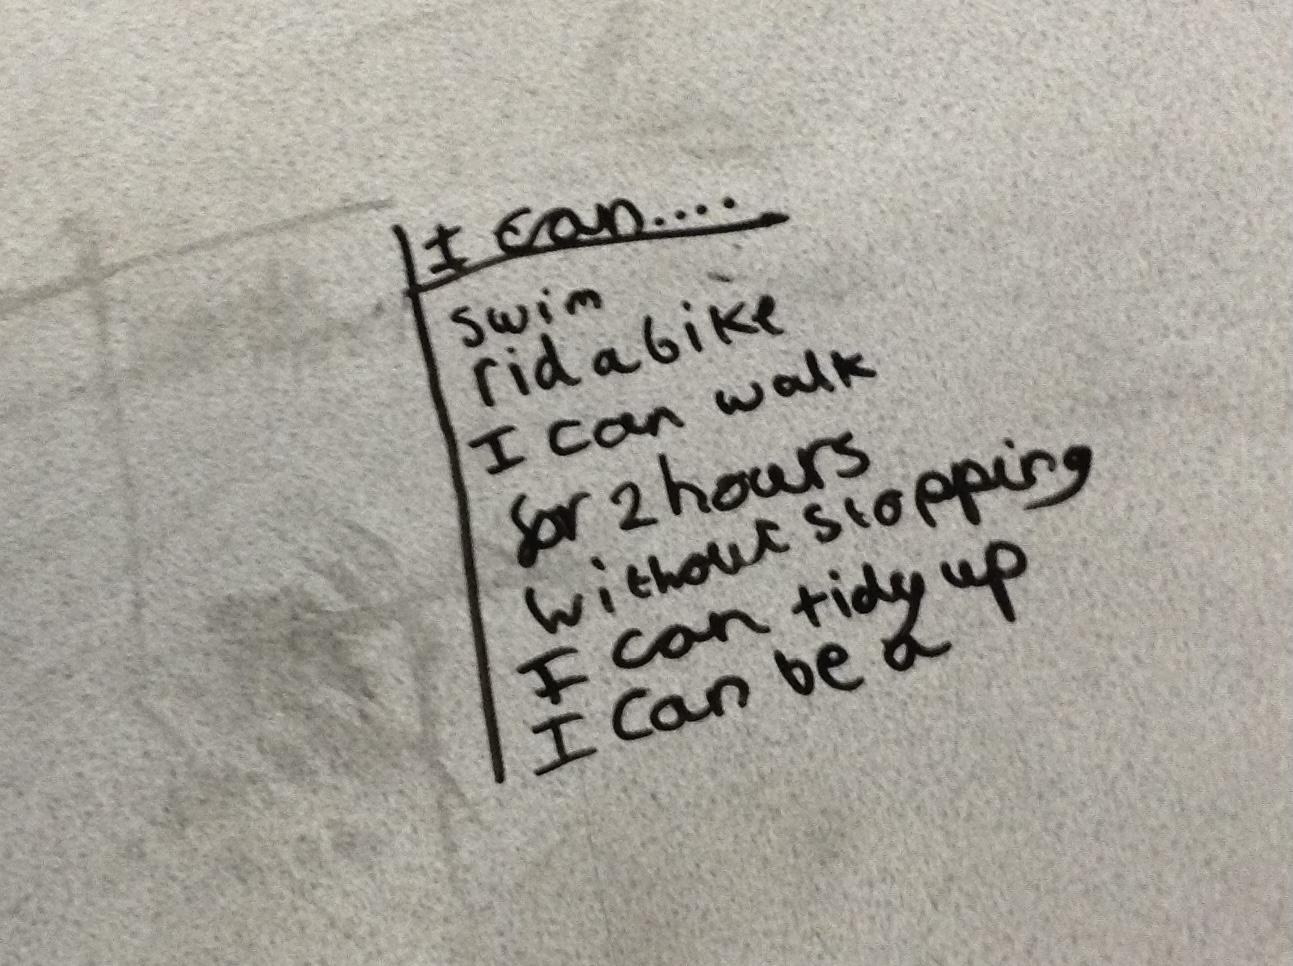 I can....
swim
rid a bike
I can walk
for 2 hours
without stopping
I can tidy up
I can be a